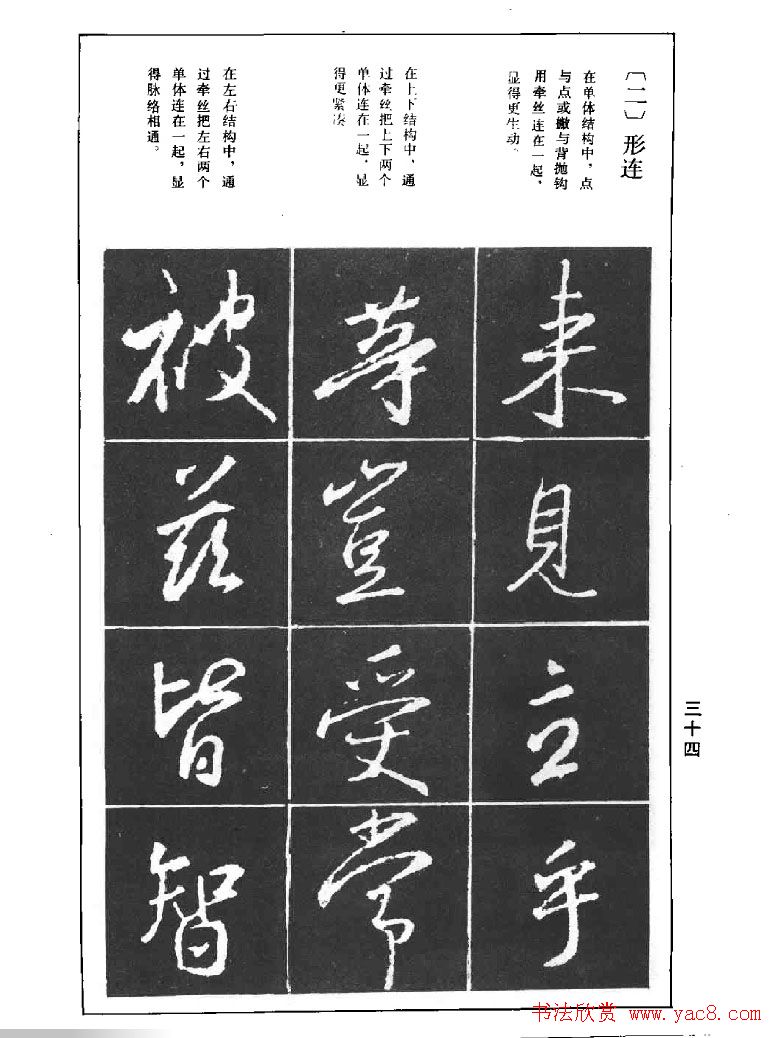 〔二〕形连
在单体结构中，点
与点或撇与背抛钩
用牵丝连在一起，
显得更生动。
在上下结构中，通
过牵丝把上下两个
单体连在一起，显
得更紧凑
在左右结构中，通
过牵丝把左右两个
单体连在一起，显
得脉络相通。
来
見
立
乎
豈
受
常
被
茲
皆
智
三十四
书法欣赏 www.yac8.com